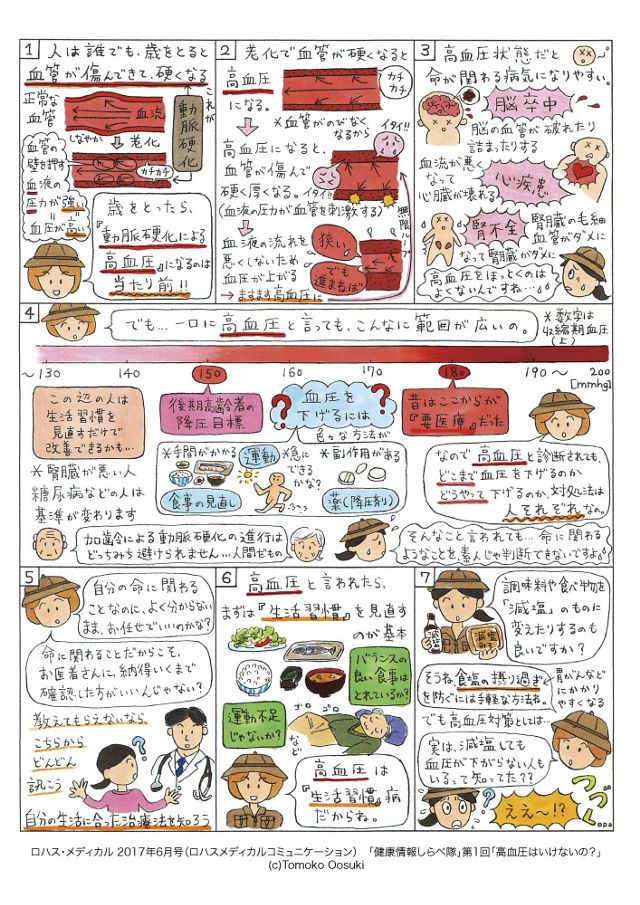 1 人は誰でも、歳をとると
血管が傷んできて、硬くなる
正常な
血管
血流
これが
動脈硬化
しなやか
老化
カチカチ
血管の
壁を押す
血液の
圧力が強い
=
血圧が高い
歳をとったら、
『動脈硬化による
高血圧』になるのは
当たり前!!
2 老化で血管が硬くなると
高血圧
になる。
カチ
カチ
※血管がのびなく
なるから
イタイ!!
高血圧になると、
血管が傷んで
硬く厚くなる。
イタイ!!
(血液の圧力が血管を刺激する)
無限ループ
血液の流れを
悪くしないため
血圧が上がる
→ますます高血圧に
狭い
でも
進まねば
3 高血圧状態だと
命が関わる病気になりやすい。
脳卒中
脳の血管が破れたり
詰まったりする
血流が悪く
なって
心臓が壊れる
心疾患
腎不全
腎臓の毛細
血管がダメに
なって腎臓がダメに
高血圧をほっとくのは
よくないんですね…
4
でも…一口に高血圧と言っても、こんなに範囲が広いの。
※数字は
収縮期血圧
(上)
〜130
140
150
160
170
180
190〜
200
[mmhg]
この辺の人は
生活習慣を
見直すだけで
改善できるかも…
※腎臓が悪い人
糖尿病などの人は
基準が変わります
後期高齢者の
降圧目標
?血圧を?
下げるには
色々な方法が
昔はここからが
『要医療』だった
※手間がかかる
食事の見直し
運動
※急に
できる
かな?
※副作用がある
薬(降圧剤)
なので高血圧と診断されても、
どこまで血圧を下げるのか
どうやって下げるのか、対処法は
人それぞれなの。
加齢による動脈硬化の進行は
どっちみち避けられません…人間だもの
そんなこと言われても…命に関わる
ようなことを、素人じゃ判断できないですよ。
5
自分の命に関わる
ことなのに、よく分からない
まま、お任せでいいのかな?
命に関わることだからこそ、
お医者さんに、納得いくまで
確認した方がいいんじゃない?
教えてもらえないなら、
こちらから
どんどん
訊こう
?
自分の生活に合った治療法を知ろう
6 高血圧と言われたら、
まずは『生活習慣』を見直す
のが基本
バランスの
良い食事は
とれているか?
運動不足
じゃないか?
ゴロ
ゴロ
など
高血圧は
『生活習慣』病
だからね。
7
調味料や食べ物を
「減塩」のものに
変えたりするのも
良いですか?
減塩
減塩
そうね食塩の摂り過ぎ
を防ぐには手軽な方法ね。
胃がんなど
にかかり
やすくなる
でも高血圧対策としては…
実は、減塩しても
血圧が下がらない人も
いるって知ってた??
つづく
?
ええ〜!?
ロハス・メディカル 2017年6月号(ロハスメディカルコミュニケーション) 「健康情報しらべ隊」第1回「高血圧はいけないの?」
(c)Tomoko Oosuki